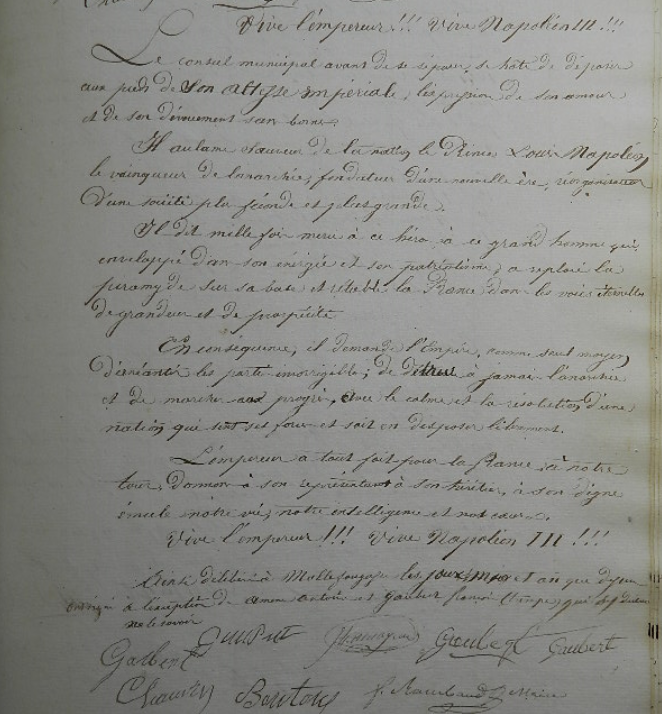 Vive l'empereur!!! Vive Napoléon III.!!!
Le conseil municipal avant de se séparer, se hâte de déposer
aux pieds de Son altesse impériale, l'expression de son amour
et de son dévouement sans borne.
Il acclame Sauveur de la nation le Prince Louis Napoléon,
le vainqueur de l'anarchie, fondateur d'une nouvelle ère, réorganisateur
d'une société plus féconde et plus grande.
Il dit mille fois merci à ce héros, à ce grand homme qui,
enveloppé dans son énergie et son patriotisme, a replacé la
piramyde sur sa base et rétabli la France dans les voies éternelles
de grandeur et de prospérité.
En conséquence, il demande l'Empire, comme seul moyen,
d'anéantir les partis incorrigibles; de détruire à jamais l'anarchie
et de marcher au progrès, avec le calme et la résolution d'une
nation qui sent ses forces et sait en disposer librement.
L'empereur a tout fait pour la France, à notre
tour, donnons à son représentant à son héritier, à son digne
émule notre vie, notre intelligence et nos cœurs.
Vive l'empereur!!! Vive Napoléon III!!!
Ainsi délibéré à les jour, mois et an que dessus
à l'exception de antoine et Gaubert qui
ne le savoir
Gaubert Gaubert
Chauvin Bontoux Rambaud Maire